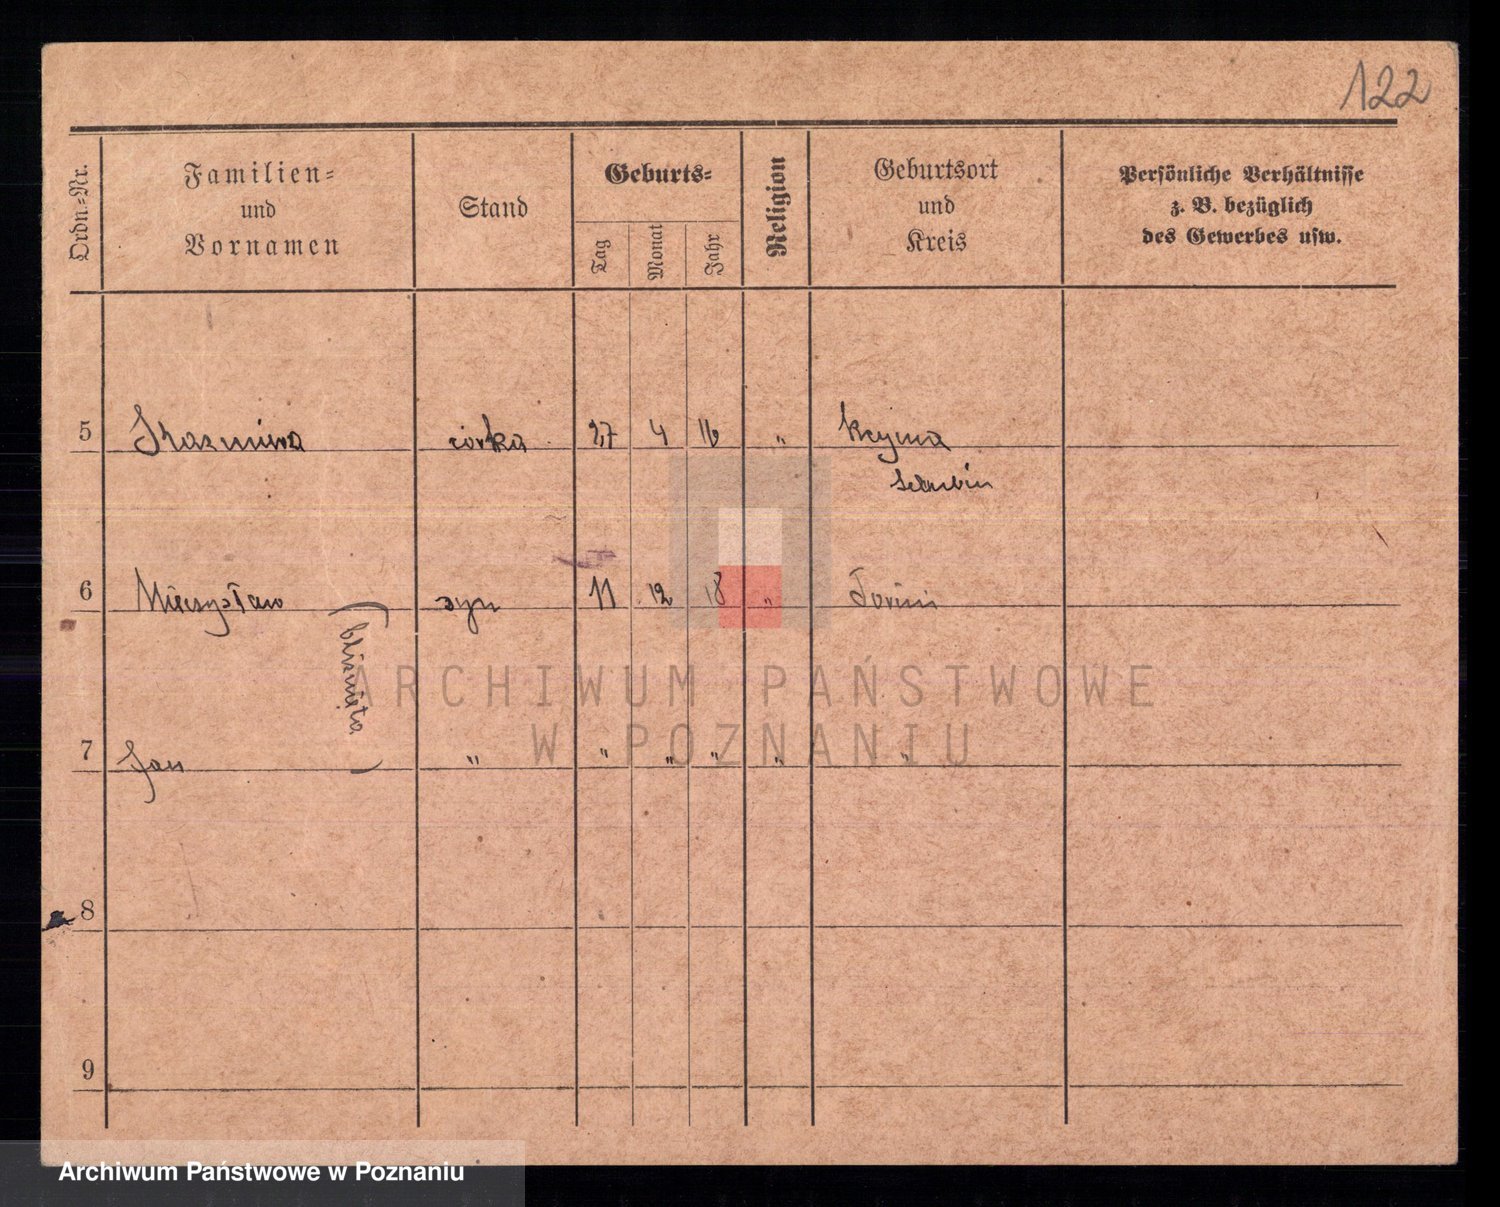 122
Ordn.-Nr.
Familien-
und
Vornamen
Stand
Geburts-
Tag
Monat
Jahr
Religion
Geburtsort
und
Kreis
Persönliche Verhältnisse
z. B. bezüglich
des Gewerbes usw.
5 Kazmira córka 27 4 16 „ Kcynia
6 Mieczysław syn 11 12 18 „
bliźnięta
7 Jan " " " " " "
8
9
ARCHIWUM PAŃSTWOWE
W POZNANIU
Archiwum Państwowe w Poznaniu